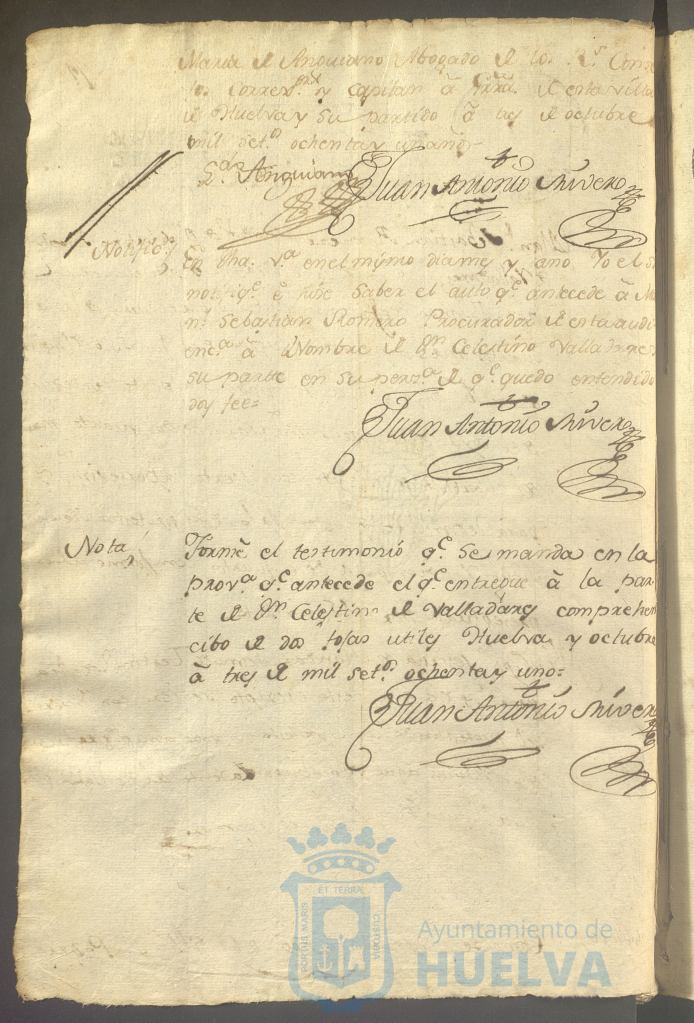 Maria de Anguiano Abogado de los R.s Con
Correx.r y Capitan â Grrâ. de esta villa
de Huelva y su partido â tres de octubre
mil set.s ochenta y un años
Anguiano
Juan Antonio Shivero
Notific.n
En dha. v.a en el mismo dia mes y año Yo el
notifiq.e è hise saber el auto q.e antecede â
n.l Sebastian Romero Procurador de esta audi
enc.a â Nombre de D.n Celestino Valladares
su parte en su pers.a de q.e quedo entendido
doy fee=
Juan Antonio Shivero
Nota
Formè el testimonio q.e se manda en la
prov.a q.e antecede el q.e entreguè â la par
te de D.n Celestino de Valladares comprehen
cibo de dos fojas utiles Huelva y octubre
â tres de mil set.s ochenta y uno=
Juan Antonio Shivero
PORTUS MARIS
ET TERRÆ
CUSTODIA
Ayuntamiento de
HUELVA